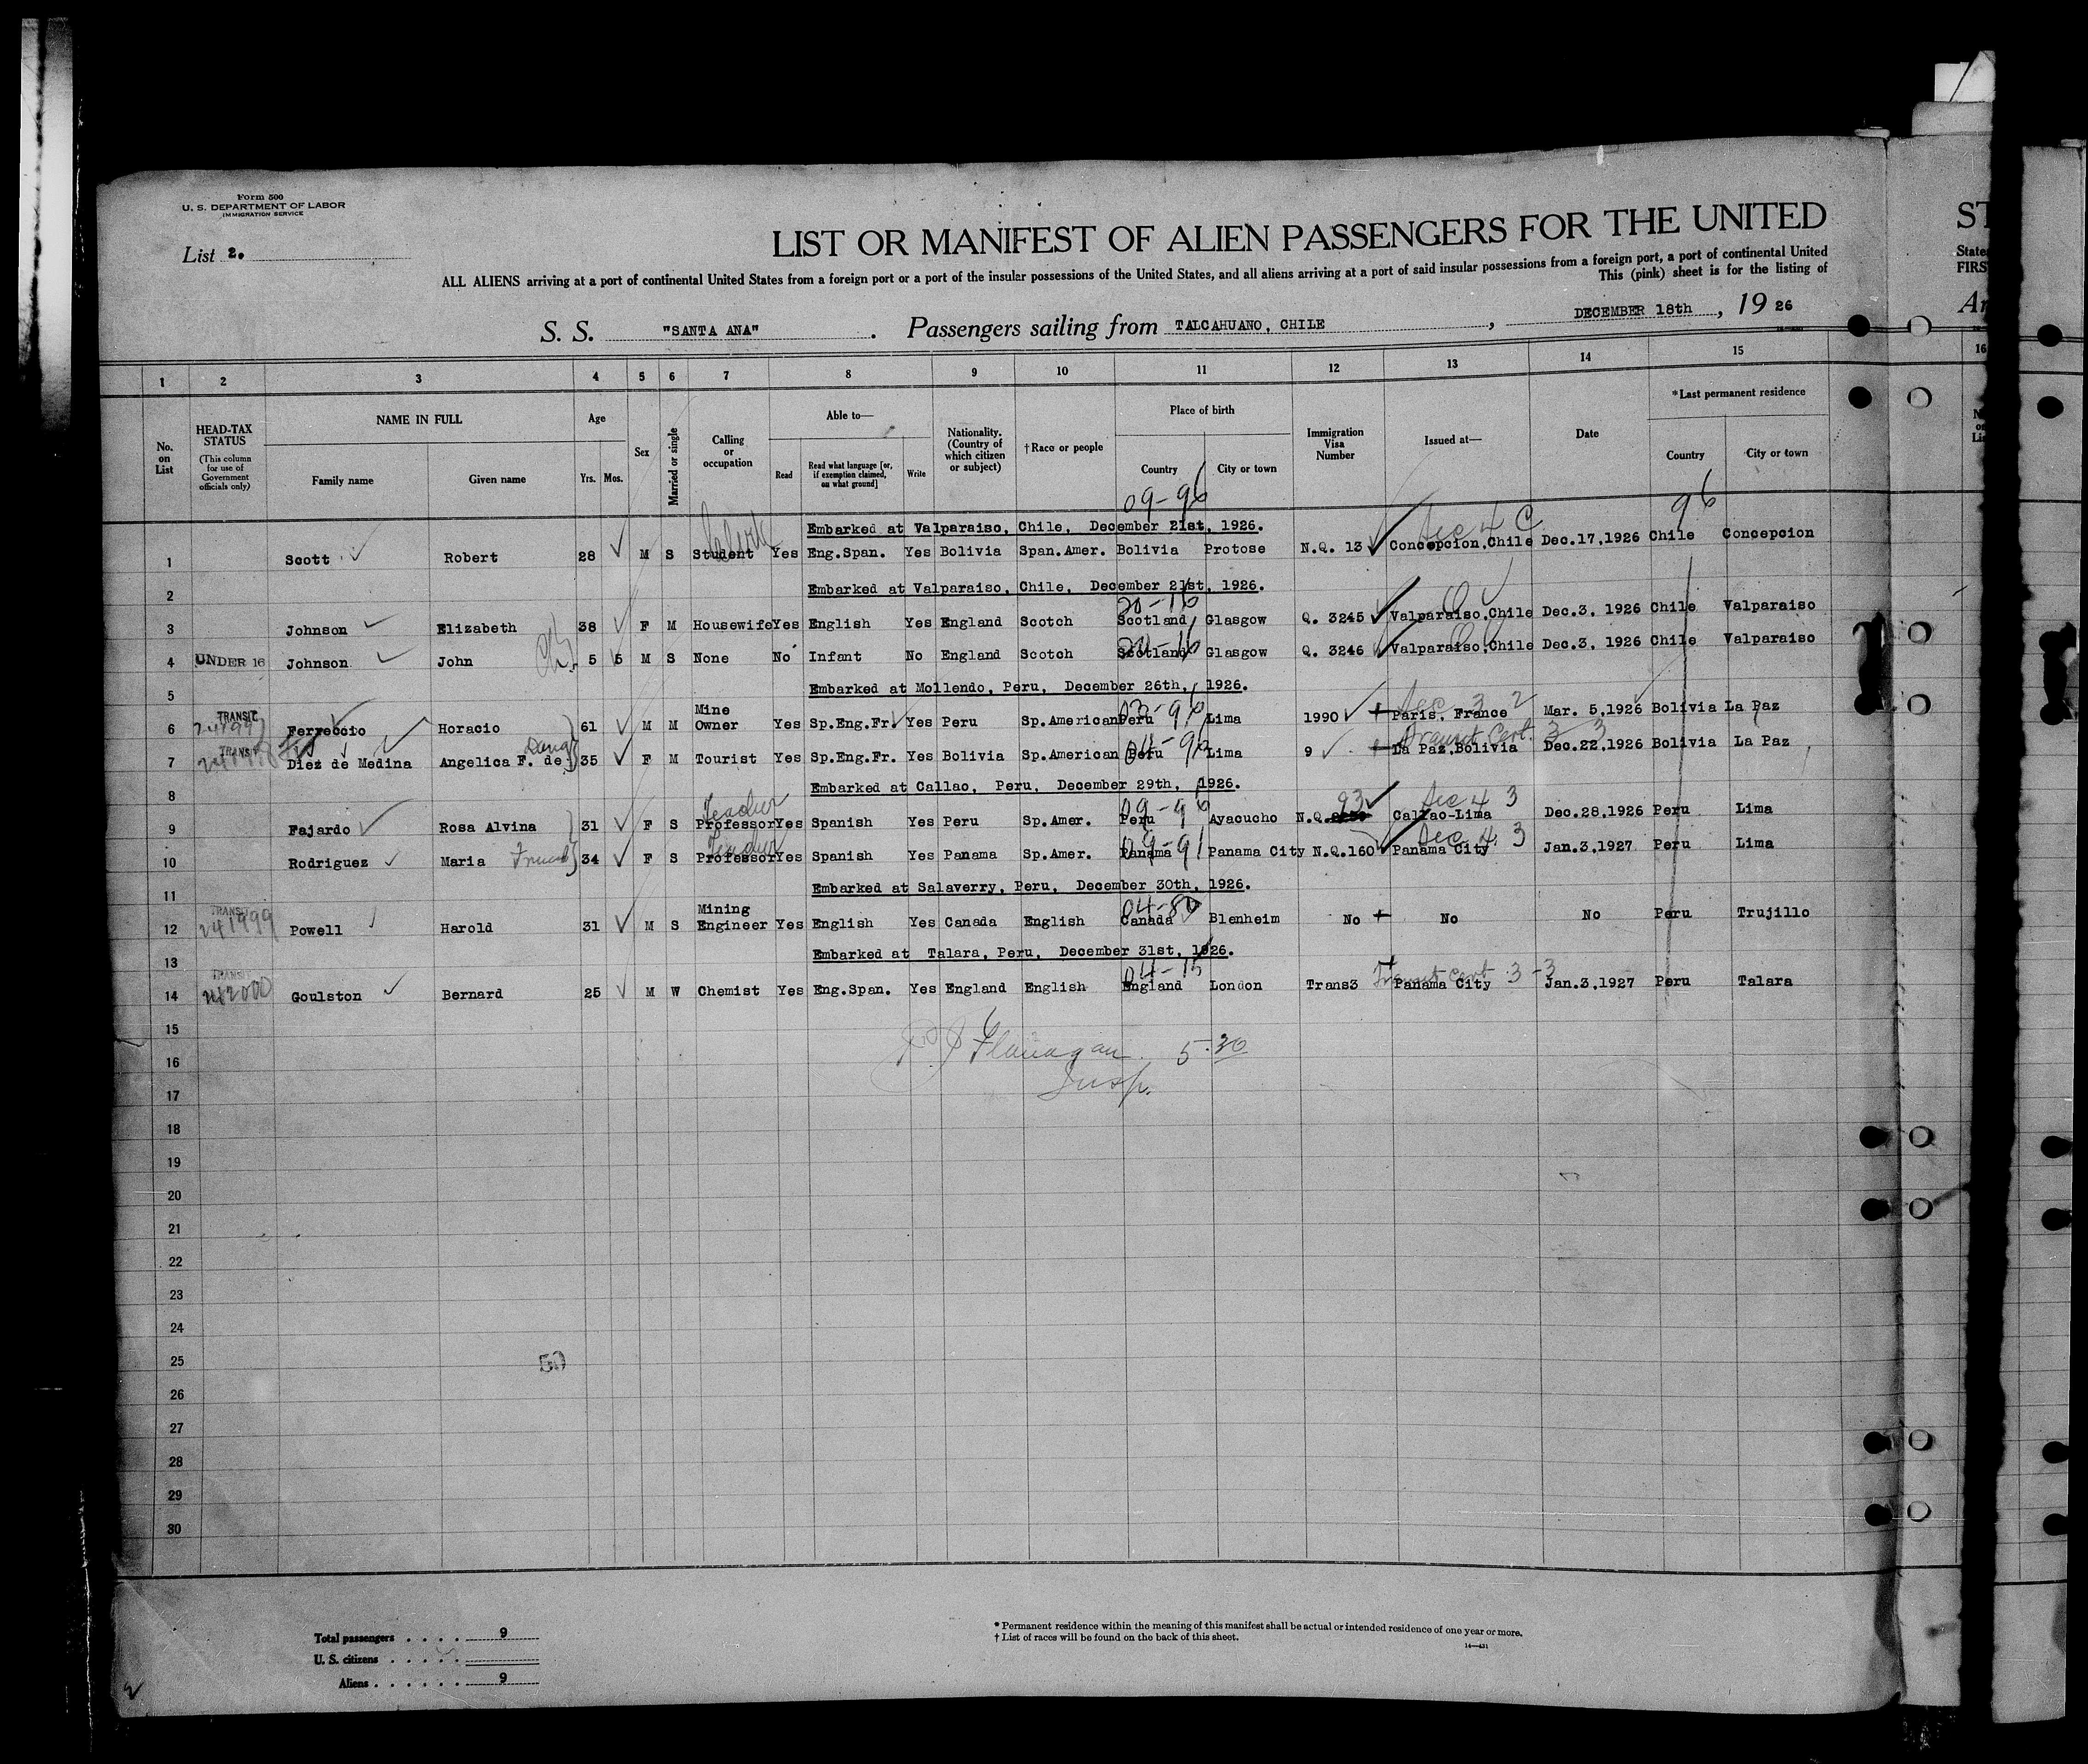 Form 500
U. S. DEPARTMENT OF LABOR
IMMIGRATION SERVICE
List 2.
LIST OR MANIFEST OF ALIEN PASSENGERS FOR THE UNITED
ST
ALL ALIENS arriving at a port of continental United States from a foreign port or a port of the insular possessions of the United States, and all aliens arriving at a port of said insular possessions from a foreign port, a port of continental United
State
This (pink) sheet is for the listing of
FIRS
S. S. "SANTA ANA". Passengers sailing from TALCAHUANO, CHILE, DECEMBER 18th, 19 26
Ar
1 2 3 4 5 6 7 8 9 10 11 12 13 14 15 16
No. on List
HEAD-TAX STATUS (This column for use of Government officials only)
NAME IN FULL Family name Given name
Age Yrs. Mos.
Sex
Married or single
Calling or occupation
Able to— Read Read what language [or, if exemption claimed, on what ground] Write
Nationality. (Country of which citizen or subject)
†Race or people
Place of birth Country City or town
Immigration Visa Number
Issued at—
Date
*Last permanent residence Country City or town
09-96 96
Embarked at Valparaiso, Chile, December 21st, 1926.
Sec 4 C
1 Scott Robert 28 M S Student Yes Eng.Span. Yes Bolivia Span.Amer. Bolivia Protose N.Q. 13 Concepcion,Chile Dec.17,1926 Chile Concepcion
2 Embarked at Valparaiso, Chile, December 21st, 1926.
20-16
3 Johnson Elizabeth 38 F M Housewife Yes English Yes England Scotch Scotland Glasgow Q. 3245 Valparaiso,Chile Dec.3, 1926 Chile Valparaiso
4 UNDER 16 Johnson John 5 5 M S None No Infant No England Scotch Scotland Glasgow Q. 3246 Valparaiso,Chile Dec.3, 1926 Chile Valparaiso
5 Embarked at Mollendo, Peru, December 26th, 1926.
TRANSIT Sec 3 2
6 Ferreccio Horacio 61 M M Mine Owner Yes Sp.Eng.Fr. Yes Peru Sp.American Peru Lima 1990 Paris, France Mar. 5,1926 Bolivia La Paz
TRANSIT Transit Cert. 3-3
7 Diez de Medina Angelica F. de 35 F M Tourist Yes Sp.Eng.Fr. Yes Bolivia Sp.American Peru Lima 9 La Paz,Bolivia Dec.22,1926 Bolivia La Paz
8 Embarked at Callao, Peru, December 29th, 1926.
Teacher 09-96 93 Sec 4 3
9 Fajardo Rosa Alvina 31 F S Professor Yes Spanish Yes Peru Sp.Amer. Peru Ayacucho N.Q. Callao-Lima Dec.28,1926 Peru Lima
Teacher 09-91 Sec 4 3
10 Rodriguez Maria Friend 34 F S Professor Yes Spanish Yes Panama Sp.Amer. Panama Panama City N.Q.160 Panama City Jan.3,1927 Peru Lima
11 Embarked at Salaverry, Peru, December 30th, 1926.
TRANSIT 241999
12 Powell Harold 31 M S Mining Engineer Yes English Yes Canada English Canada Blenheim No No No Peru Trujillo
13 Embarked at Talara, Peru, December 31st, 1926.
TRANSIT 242000 04-15 Transit Cert 3-3
14 Goulston Bernard 25 M W Chemist Yes Eng.Span. Yes England English England London Trans3 Panama City Jan.3,1927 Peru Talara
15
Flanagan 5.30
16
Insp.
17
18
19
20
21
22
23
24
25
50
26
27
28
29
30
Total passengers . . . . 9
U. S. citizens . . . . .
Aliens . . . . . . 9
* Permanent residence within the meaning of this manifest shall be actual or intended residence of one year or more.
† List of races will be found on the back of this sheet.
14—431